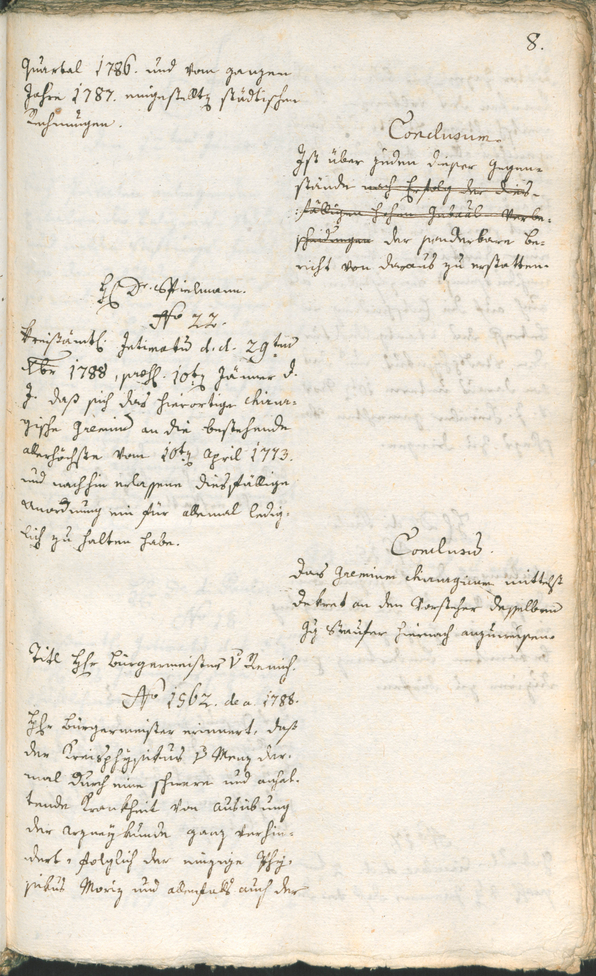 8.
Quartal 1786. und vom ganzen
Jahre 1787. eingestellte städtischen
Rechnungen.
Conclusum.
Ist über jeden dieser Gegen-
stände nach Erfolg der dies-
fälligen hohen Gubial-Verbe-
scheidungen der sonderbare be-
richt von daraus zu erstatten.
H. Dr. Spielmann.
No 22.
Kreisämtl. Intimatum d.d. 29ten
Xbr 1788, praes. 10t Jänner d.
J. daß sich das hierortige chirur-
gische Gremium an die bestehende
allerhöchste vom 10t April 1773.
und nachhin erlassene diesfällige
Anordnung ein für allemal ledig-
lich zu halten habe.
Conclus.
Das Gremium chirurgicum mittelst
Dekret an den Vorsteher desselben
Staufer hiernach anzuweisen.
Titl Hhr Bürgermeister v Remich.
No 1562. de a. 1788.
Hhr Bürgermeister erinnert, daß
der Kreisphysikus v Menz der-
mal durch eine schwere und anhal-
tende Krankheit von Ausübung
der Arzneykunde ganz verhin-
dert, folglich der einzige Phy-
sikus Moriz und allenfalls auch der